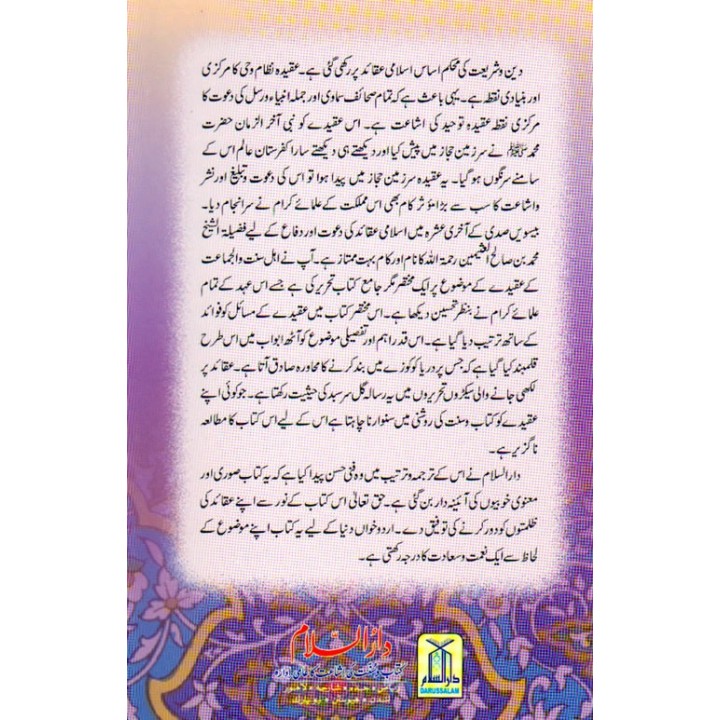 دین و شریعت کی محکم اساس اسلامی عقائد پر رکھی گئی ہے۔ عقیدہ نظام وحی کا مرکزی
اور بنیادی نقطہ ہے۔ یہی باعث ہے کہ تمام صحائف سماوی اور جملہ انبیاء ورسل کی دعوت کا
مرکزی نقطہ عقیدہ توحید کی اشاعت ہے۔ اس عقیدے کو نبی آخر الزمان حضرت
محمد ﷺ نے سرزمین حجاز میں پیش کیا اور دیکھتے ہی دیکھتے سارا کفرستان عالم اس کے
سامنے سرنگوں ہو گیا۔ یہ عقیدہ سرزمین حجاز میں پیدا ہوا تو اس کی دعوت و تبلیغ اور نشر
واشاعت کا سب سے بڑا مؤثر کام بھی اس مملکت کے علمائے کرام نے سرانجام دیا۔
بیسویں صدی کے آخری عشرہ میں اسلامی عقائد کی دعوت اور دفاع کے لیے فضیلۃ الشیخ
محمد بن صالح العثیمین رحمۃ اللہ کا نام اور کام بہت ممتاز ہے۔ آپ نے اہل سنت والجماعت
کے عقیدے کے موضوع پر ایک مختصر مگر جامع کتاب تحریر کی ہے جسے اس عہد کے تمام
علمائے کرام نے بنظر تحسین دیکھا ہے۔ اس مختصر کتاب میں عقیدے کے مسائل کو فوائد
کے ساتھ ترتیب دیا گیا ہے۔ اس قدر اہم اور تفصیلی موضوع کو آٹھ ابواب میں اس طرح
قلمبند کیا گیا ہے کہ جس پر دریا کو کوزے میں بند کرنے کا محاورہ صادق آتا ہے۔ عقائد پر
لکھی جانے والی سیکڑوں تحریروں میں یہ رسالہ گل سرسبد کی حیثیت رکھتا ہے۔ جو کوئی اپنے
عقیدے کو کتاب وسنت کی روشنی میں سنوارنا چاہتا ہے اس کے لیے اس کتاب کا مطالعہ
ناگزیر ہے۔
دارالسلام نے اس کے ترجمہ و ترتیب میں وہ فنی حسن پیدا کیا ہے کہ یہ کتاب صوری اور
معنوی خوبیوں کی آئینہ دار بن گئی ہے۔ حق تعالیٰ اس کتاب کے نور سے اپنے عقائد کی
ظلمتوں کو دور کرنے کی توفیق دے۔ اردو خواں دنیا کے لیے یہ کتاب اپنے موضوع کے
لحاظ سے ایک نعمت وسعادت کا درجہ رکھتی ہے۔
دارالسلام
کتاب و سنت کی اشاعت کا عالمی ادارہ
دارالسلام
DARUSSALAM